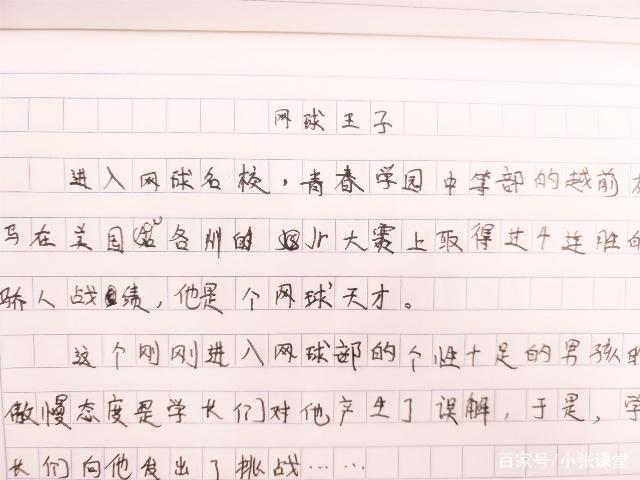 网球王子
进入网球名校，青春学园中等部的越前
马在美国各州的Jr大赛上取得过4连胜的
骄人战绩，他是个网球天才。
这个刚刚进入网球部的个性十足的男孩的
傲慢态度是学长们对他产生了误解，于是，学
长们向他发出了挑战……
百家号/小张课堂